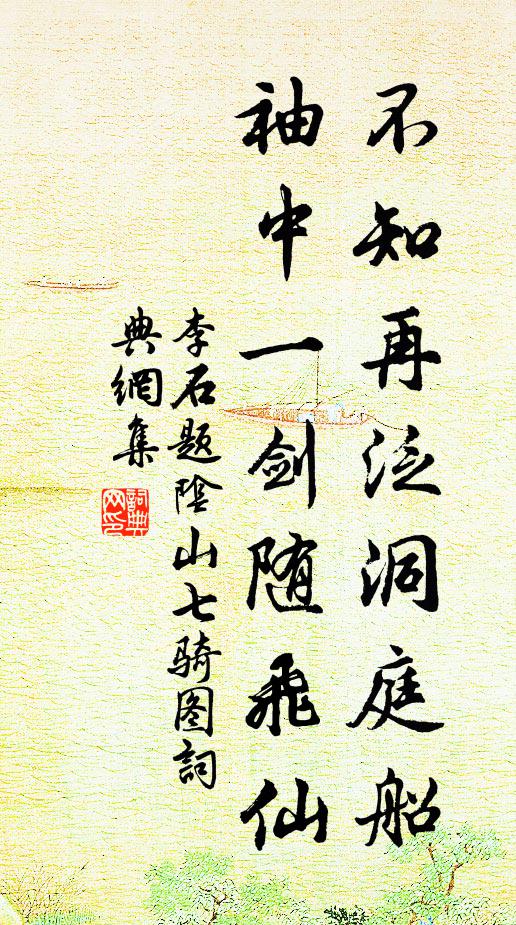 不知再泛洞庭船
袖中一剑随飛仙
李石题陰山七骑图詞
典網集
詞典网印